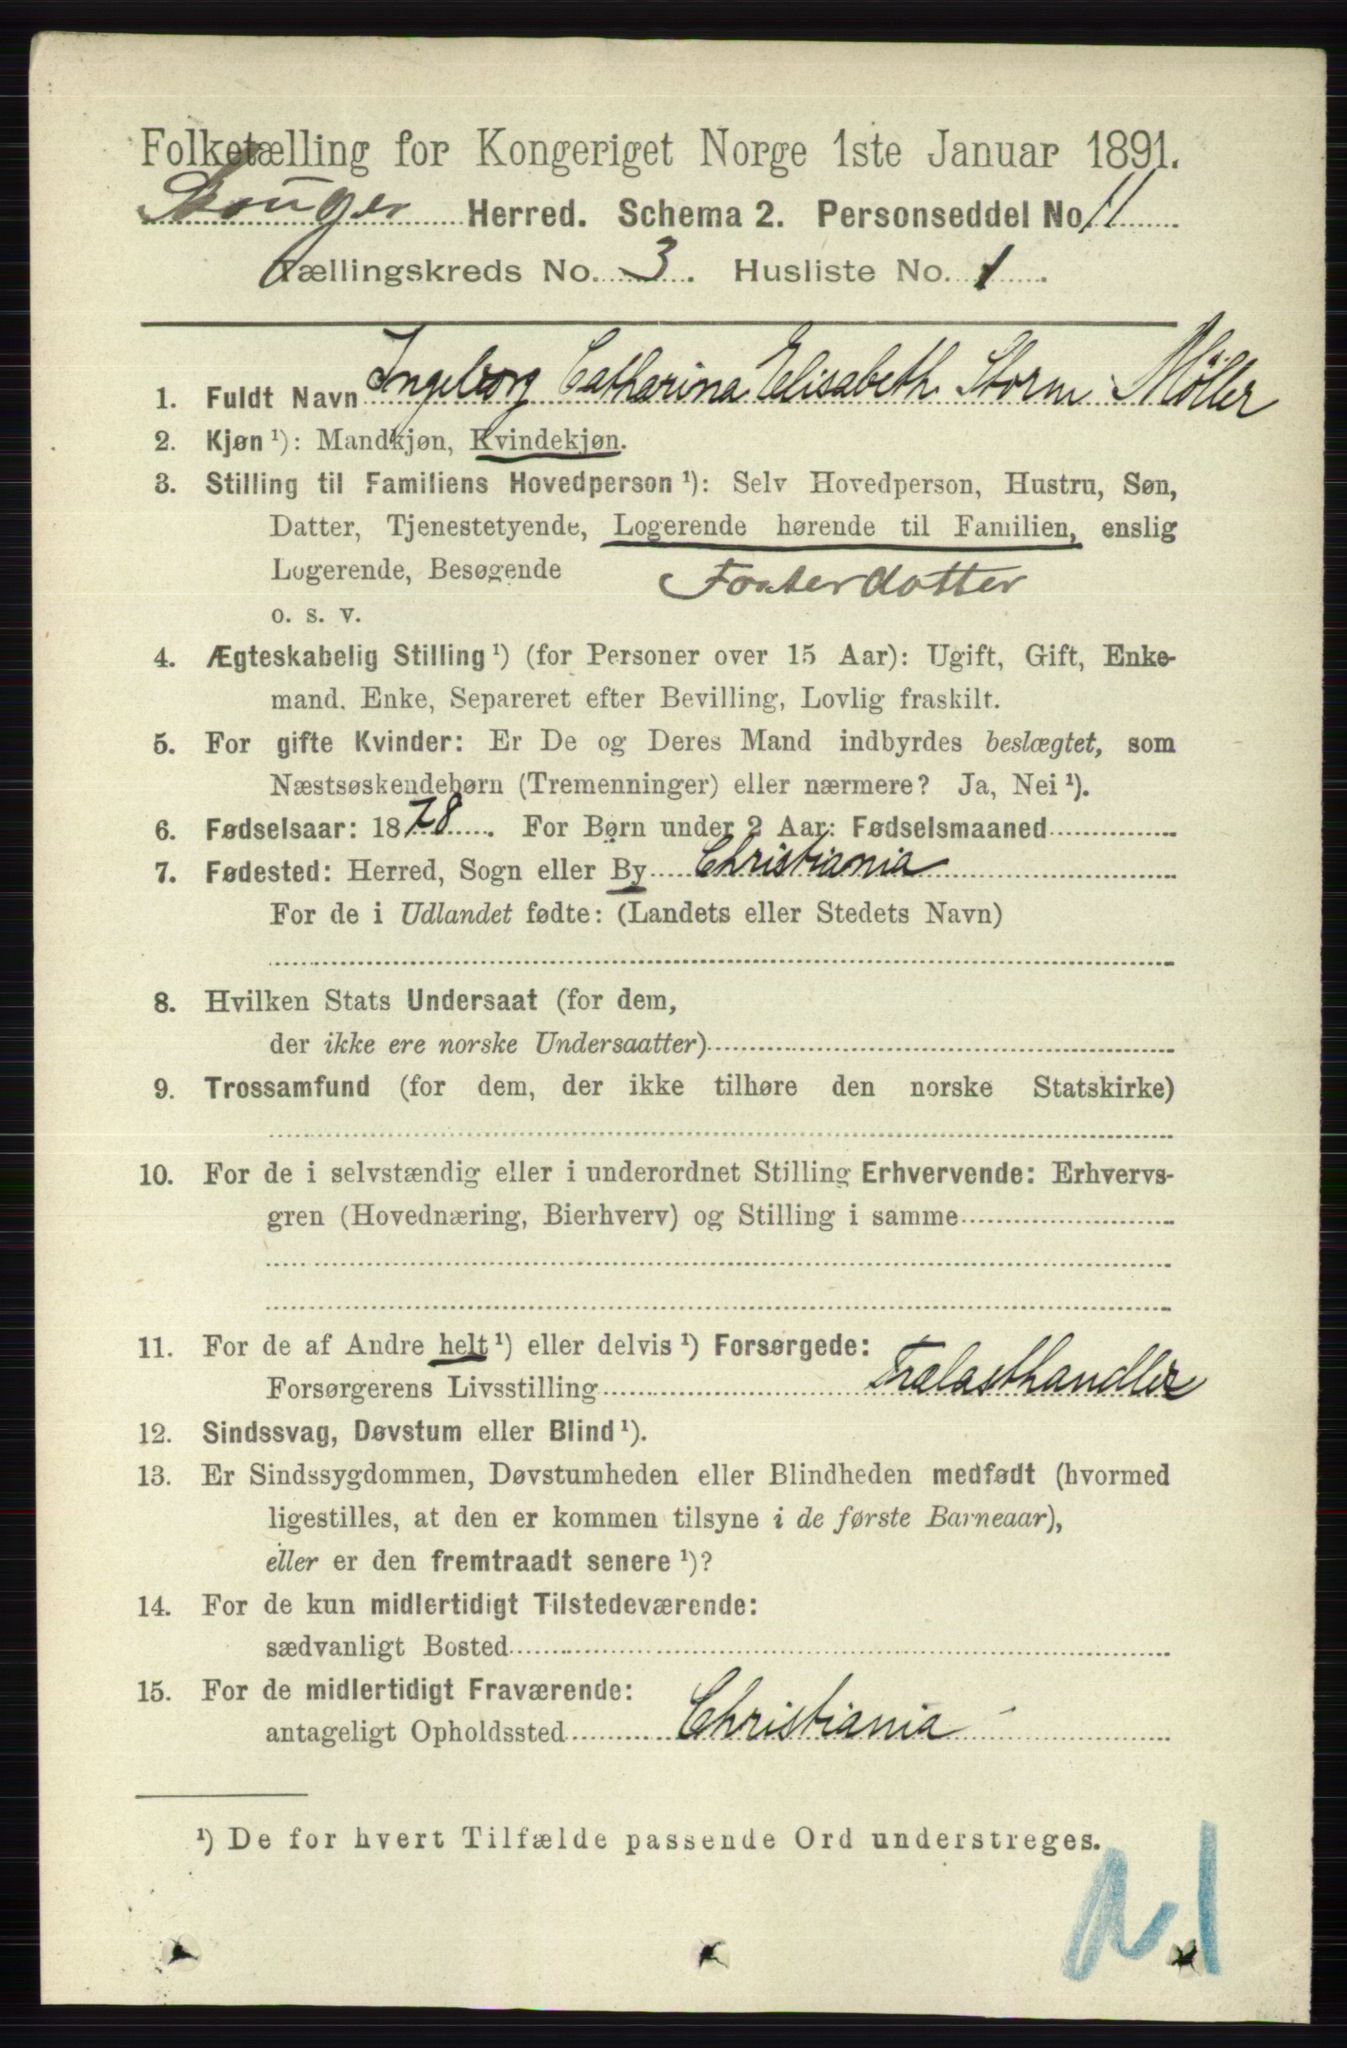 Folketælling for Kongeriget Norge 1ste Januar 1891.
Skouger Herred. Schema 2. Personseddel No 11
Tællingskreds No. 3. Husliste No. 1.
1. Fuldt Navn Ingeborg Catharina Elisabeth Storm Møller
2. Kjøn ¹): Mandkjøn, Kvindekjøn.
3. Stilling til Familiens Hovedperson ¹): Selv Hovedperson, Hustru, Søn,
Datter, Tjenestetyende, Logerende hørende til Familien, enslig
Logerende, Besøgende Fosterdatter
o. s. v.
4. Ægteskabelig Stilling ¹) (for Personer over 15 Aar): Ugift, Gift, Enke-
mand, Enke, Separeret efter Bevilling, Lovlig fraskilt.
5. For gifte Kvinder: Er De og Deres Mand indbyrdes beslægtet, som
Næstsøskendebørn (Tremenninger) eller nærmere? Ja, Nei ¹).
6. Fødselsaar: 1878. For Børn under 2 Aar: Fødselsmaaned
7. Fødested: Herred, Sogn eller By Christiania
For de i Udlandet fødte: (Landets eller Stedets Navn)
8. Hvilken Stats Undersaat (for dem,
der ikke ere norske Undersaatter)
9. Trossamfund (for dem, der ikke tilhøre den norske Statskirke)
10. For de i selvstændig eller i underordnet Stilling Erhvervende: Erhvervs-
gren (Hovednæring, Bierhverv) og Stilling i samme
11. For de af Andre helt ¹) eller delvis ¹) Forsørgede:
Forsørgerens Livsstilling Trælasthandler
12. Sindssvag, Døvstum eller Blind ¹).
13. Er Sindssygdommen, Døvstumheden eller Blindheden medfødt (hvormed
ligestilles, at den er kommen tilsyne i de første Barneaar),
eller er den fremtraadt senere ¹)?
14. For de kun midlertidigt Tilstedeværende:
sædvanligt Bosted
15. For de midlertidigt Fraværende:
antageligt Opholdssted Christiania
¹) De for hvert Tilfælde passende Ord understreges.